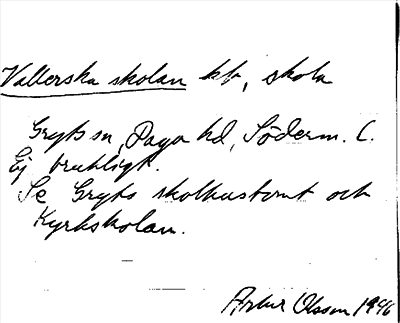 Vallerska skolan kb, skola
Gryts sn, Daga hd, Söderm. l.
Ej brukligt.
Se Gryts skolhustomt och
Kyrkskolan.
Artur Olsson 1946